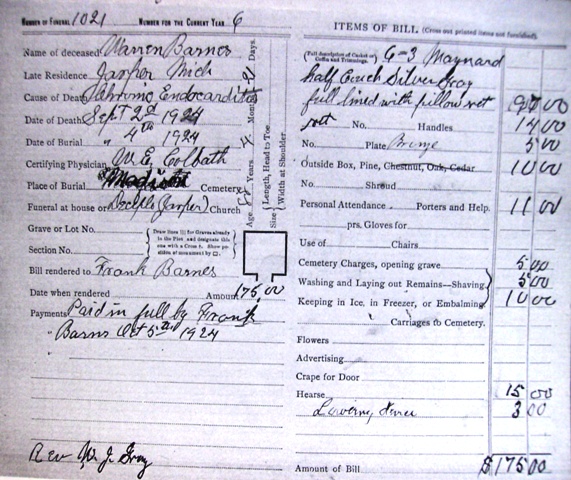 NUMBER OF FUNERAL 1021 NUMBER FOR THE CURRENT YEAR 6
Name of deceased Warren Barnes
Late Residence Jasper Mich
Cause of Death Chronic Endocarditis
Date of Death Sept 2d 1924
Date of Burial " 4th 1924
Certifying Physician W. E. Colbath
Place of Burial Cemetery
Funeral at house or Disciple (Jasper) Church
Grave or Lot No.
Section No.
Draw lines for Graves already in the Plot and designate this one with a Cross. Show position of monument by □.
Bill rendered to Frank Barnes
Date when rendered Amount 175 00
Payments Paid in full by Frank
" Barns Oct 5th 1924
"
Rev W. J. Gray
Age Years Months Days.
Size { Length, Head to Toe
Width at Shoulder
ITEMS OF BILL (Cross out printed items not furnished)
(Full description of Casket or Coffin and Trimmings.) 6-3 Maynard
half Couch Silver Gray
full lined with pillow set
No. Handles 14 00
No. Plate 5 00
Outside Box, Pine, Chestnut, Oak, Cedar 10 00
No. Shroud
Personal Attendance Porters and Help. 11 00
prs. Gloves for
Use of Chairs
Cemetery Charges, opening grave 5 00
Washing and Laying out Remains—Shaving. 5 00
Keeping in Ice, in Freezer, or Embalming 10 00
Carriages to Cemetery.
Flowers
Advertising
Crape for Door
Hearse 15 00
Lowering 3 00
Amount of Bill $175 00